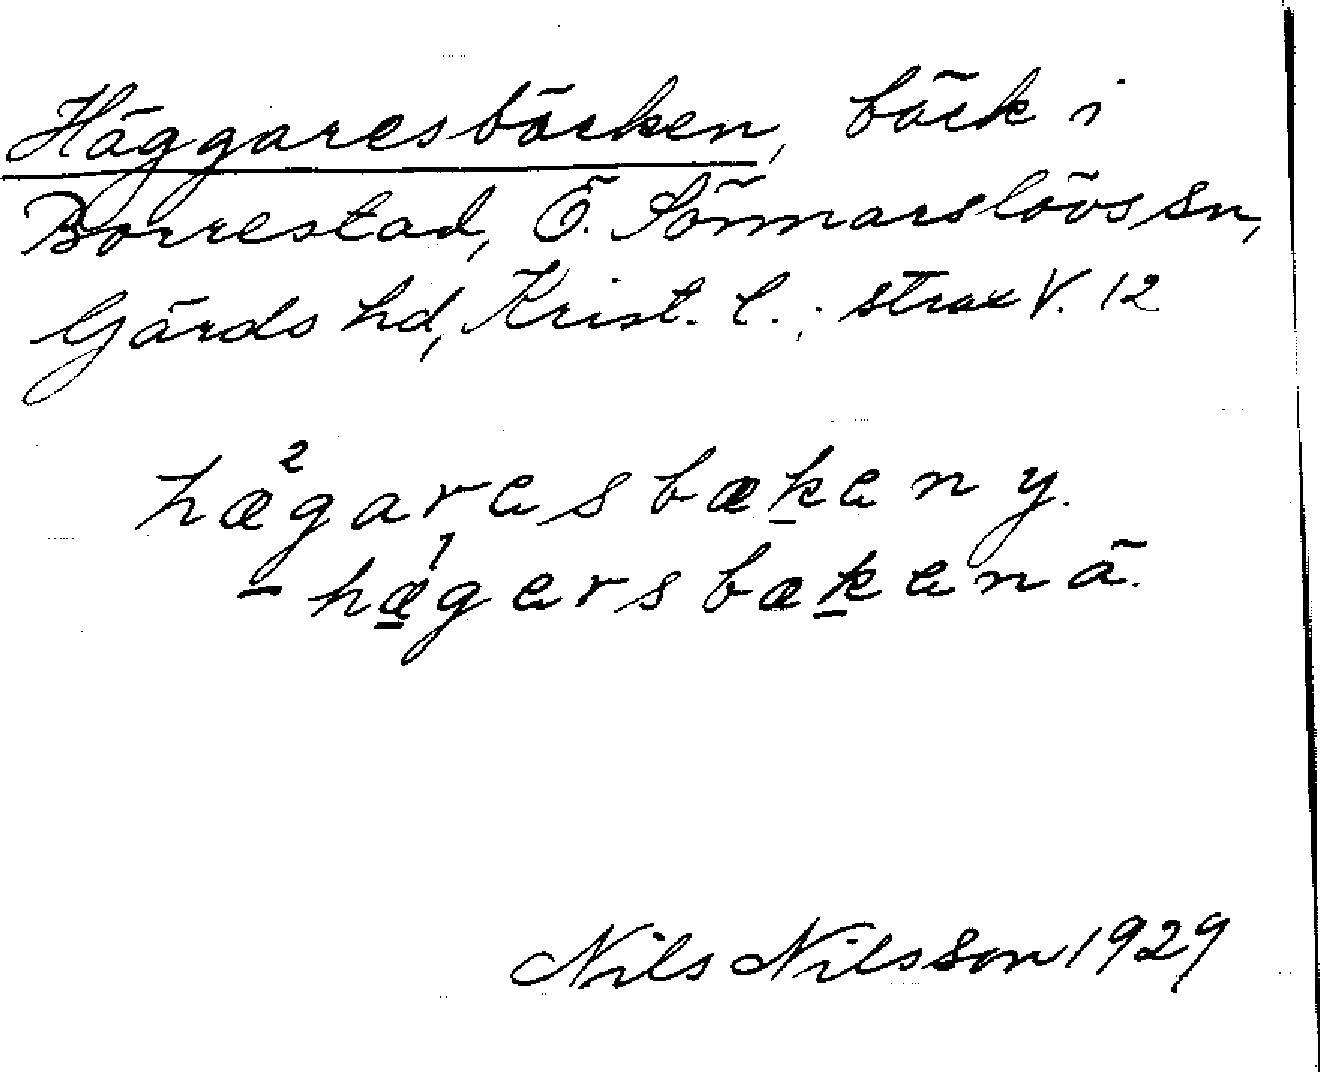 Häggaresbäcken, bäck i
Borrestad, Ö. Sönnarslövs sn,
Gärds hd, Krist. l.; strax V. 12
hæ²garesbækeny.
- hæ¹gersbækenä.
Nils Nilsson 1929